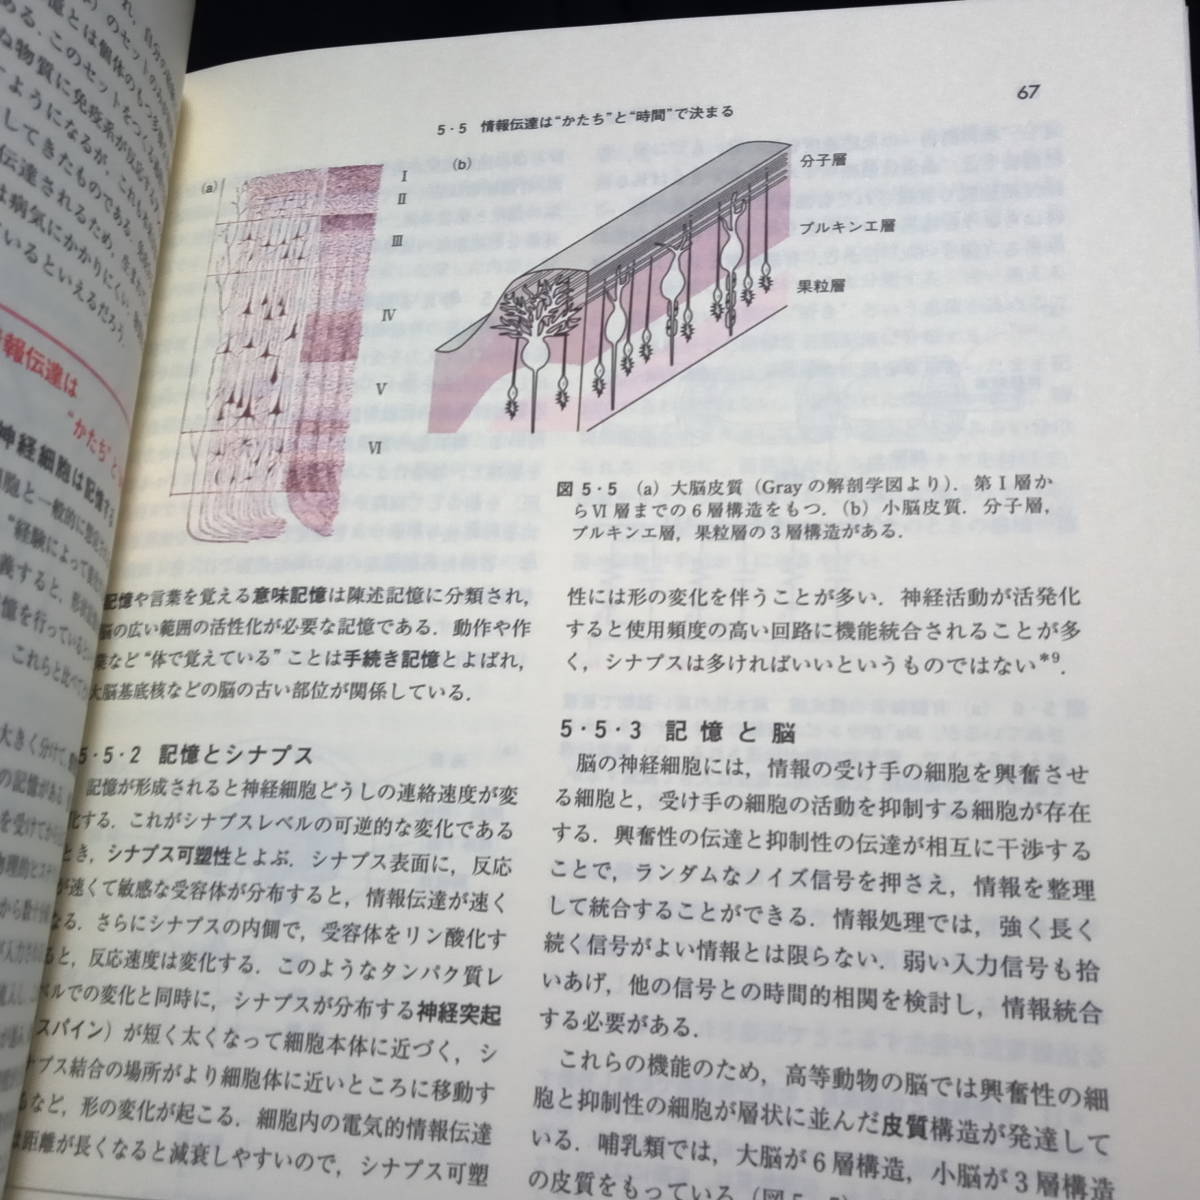 67
5・5 情報伝達は“かたち”と“時間”で決まる
(a)
I
II
III
IV
V
VI
(b)
分子層
プルキンエ層
果粒層
図 5・5 (a) 大脳皮質 (Gray の解剖学図より). 第 I 層か
ら VI 層までの 6 層構造をもつ. (b) 小脳皮質. 分子層,
プルキンエ層, 果粒層の 3 層構造がある.
記憶や言葉を覚える意味記憶は陳述記憶に分類され,
脳の広い範囲の活性化が必要な記憶である. 動作や作
業など“体で覚えている”ことは手続き記憶とよばれ,
大脳基底核などの脳の古い部位が関係している.
5・5・2 記憶とシナプス
記憶が形成されると神経細胞どうしの連絡速度が変
化する. これがシナプスレベルの可逆的な変化である
とき, シナプス可塑性とよぶ. シナプス表面に, 反応
が速くて敏感な受容体が分布すると, 情報伝達が速く
なる. さらにシナプスの内側で, 受容体をリン酸化す
ると, 反応速度は変化する. このようなタンパク質レ
ベルでの変化と同時に, シナプスが分布する神経突起
(スパイン) が短く太くなって細胞本体に近づく, シ
ナプス結合の場所がより細胞体に近いところに移動す
るなど, 形の変化が起こる. 細胞内の電気的情報伝達
は距離が長くなると減衰しやすいので, シナプス可塑
性には形の変化を伴うことが多い. 神経活動が活発化
すると使用頻度の高い回路に機能統合されることが多
く, シナプスは多ければいいというものではない*9.
5・5・3 記憶と脳
脳の神経細胞には, 情報の受け手の細胞を興奮させ
る細胞と, 受け手の細胞の活動を抑制する細胞が存在
する. 興奮性の伝達と抑制性の伝達が相互に干渉する
ことで, ランダムなノイズ信号を押さえ, 情報を整理
して統合することができる. 情報処理では, 強く長く
続く信号がよい情報とは限らない. 弱い入力信号も拾
いあげ, 他の信号との時間的相関を検討し, 情報統合
する必要がある.
これらの機能のため, 高等動物の脳では興奮性の細
胞と抑制性の細胞が層状に並んだ皮質構造が発達して
いる. 哺乳類では, 大脳が 6 層構造, 小脳が 3 層構造
の皮質をもっている